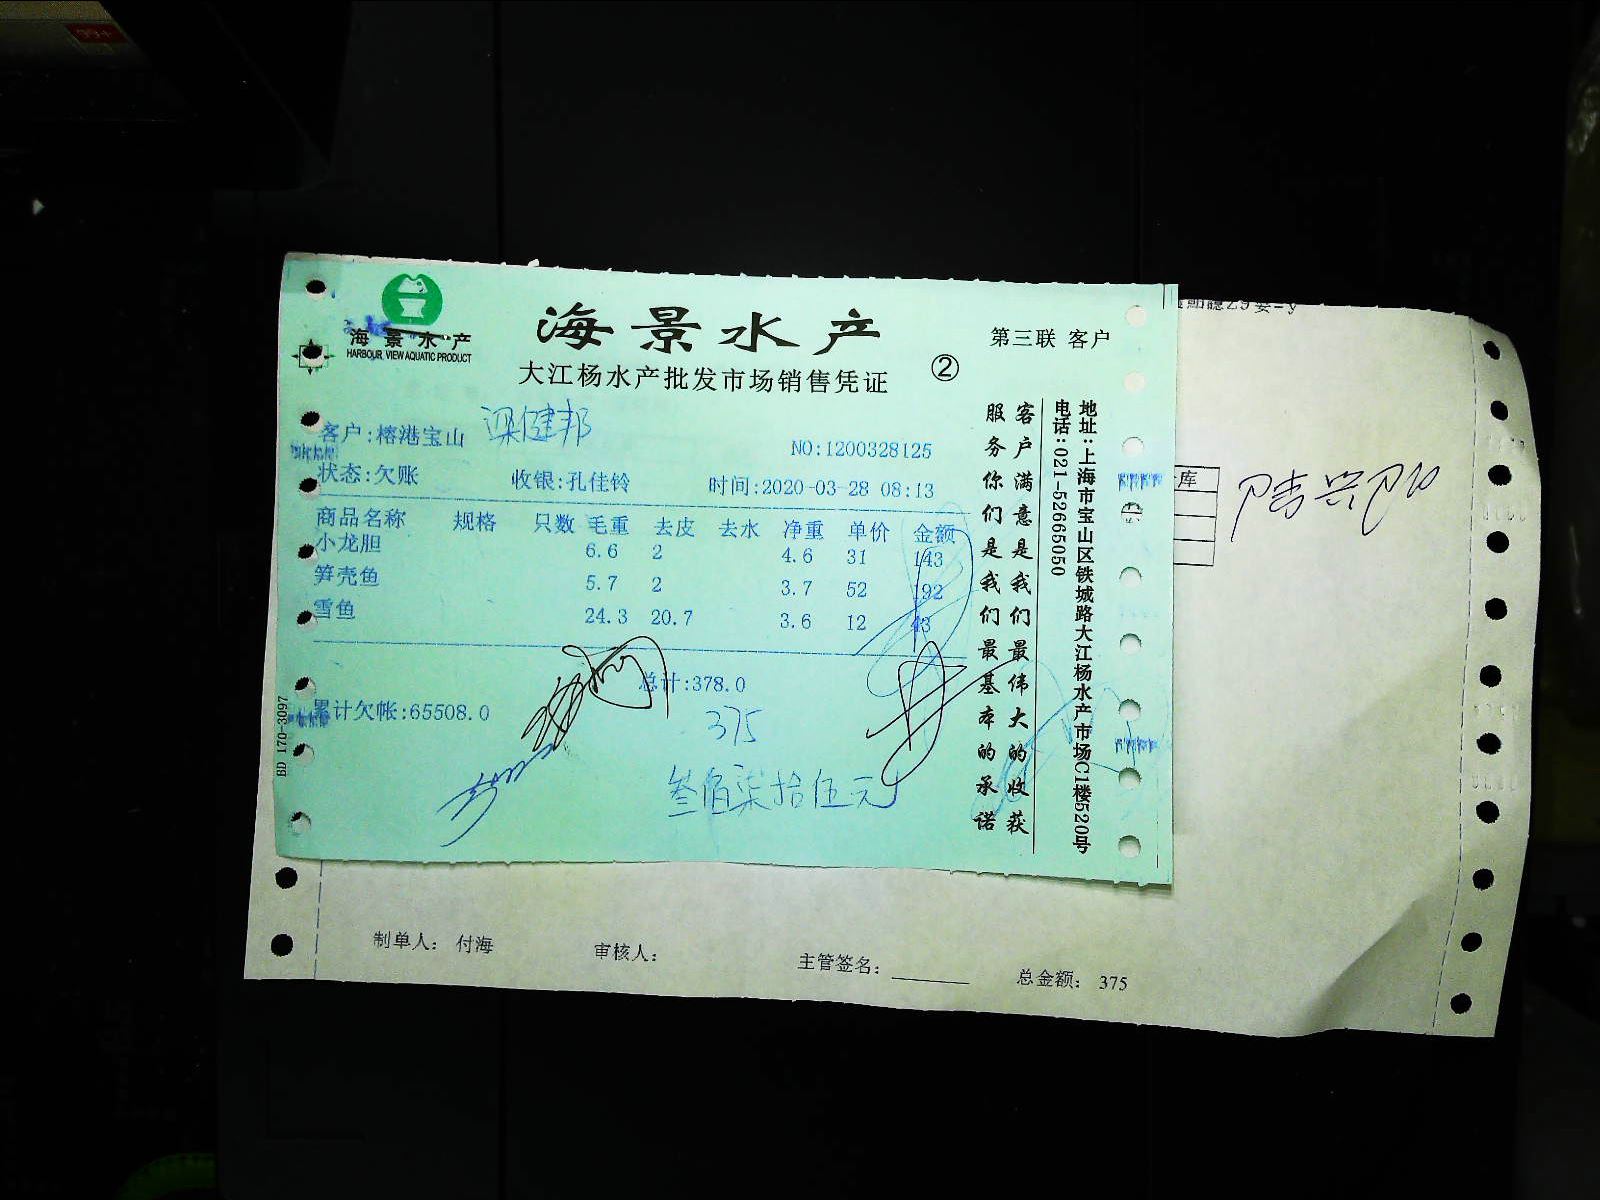 99+
海景水产
HARBOUR VIEW AQUATIC PRODUCT
海景水产
大江杨水产批发市场销售凭证
②
第三联 客户
客户:榕港宝山 梁健邦
NO:1200328125
状态:欠账 收银:孔佳铃 时间:2020-03-28 08:13
商品名称 规格 只数 毛重 去皮 去水 净重 单价 金额
小龙胆 6.6 2 4.6 31 143
笋壳鱼 5.7 2 3.7 52 192
雪鱼 24.3 20.7 3.6 12 43
总计:378.0
累计欠帐:65508.0
375
叁佰柒拾伍元
客户满意是我们最伟大的收获
服务你们是我们最基本的承诺
地址:上海市宝山区铁城路大江杨水产市场C1楼520号
电话:021-52665050
BD 170-3097
库
制单人: 付海 审核人: 主管签名: 总金额: 375